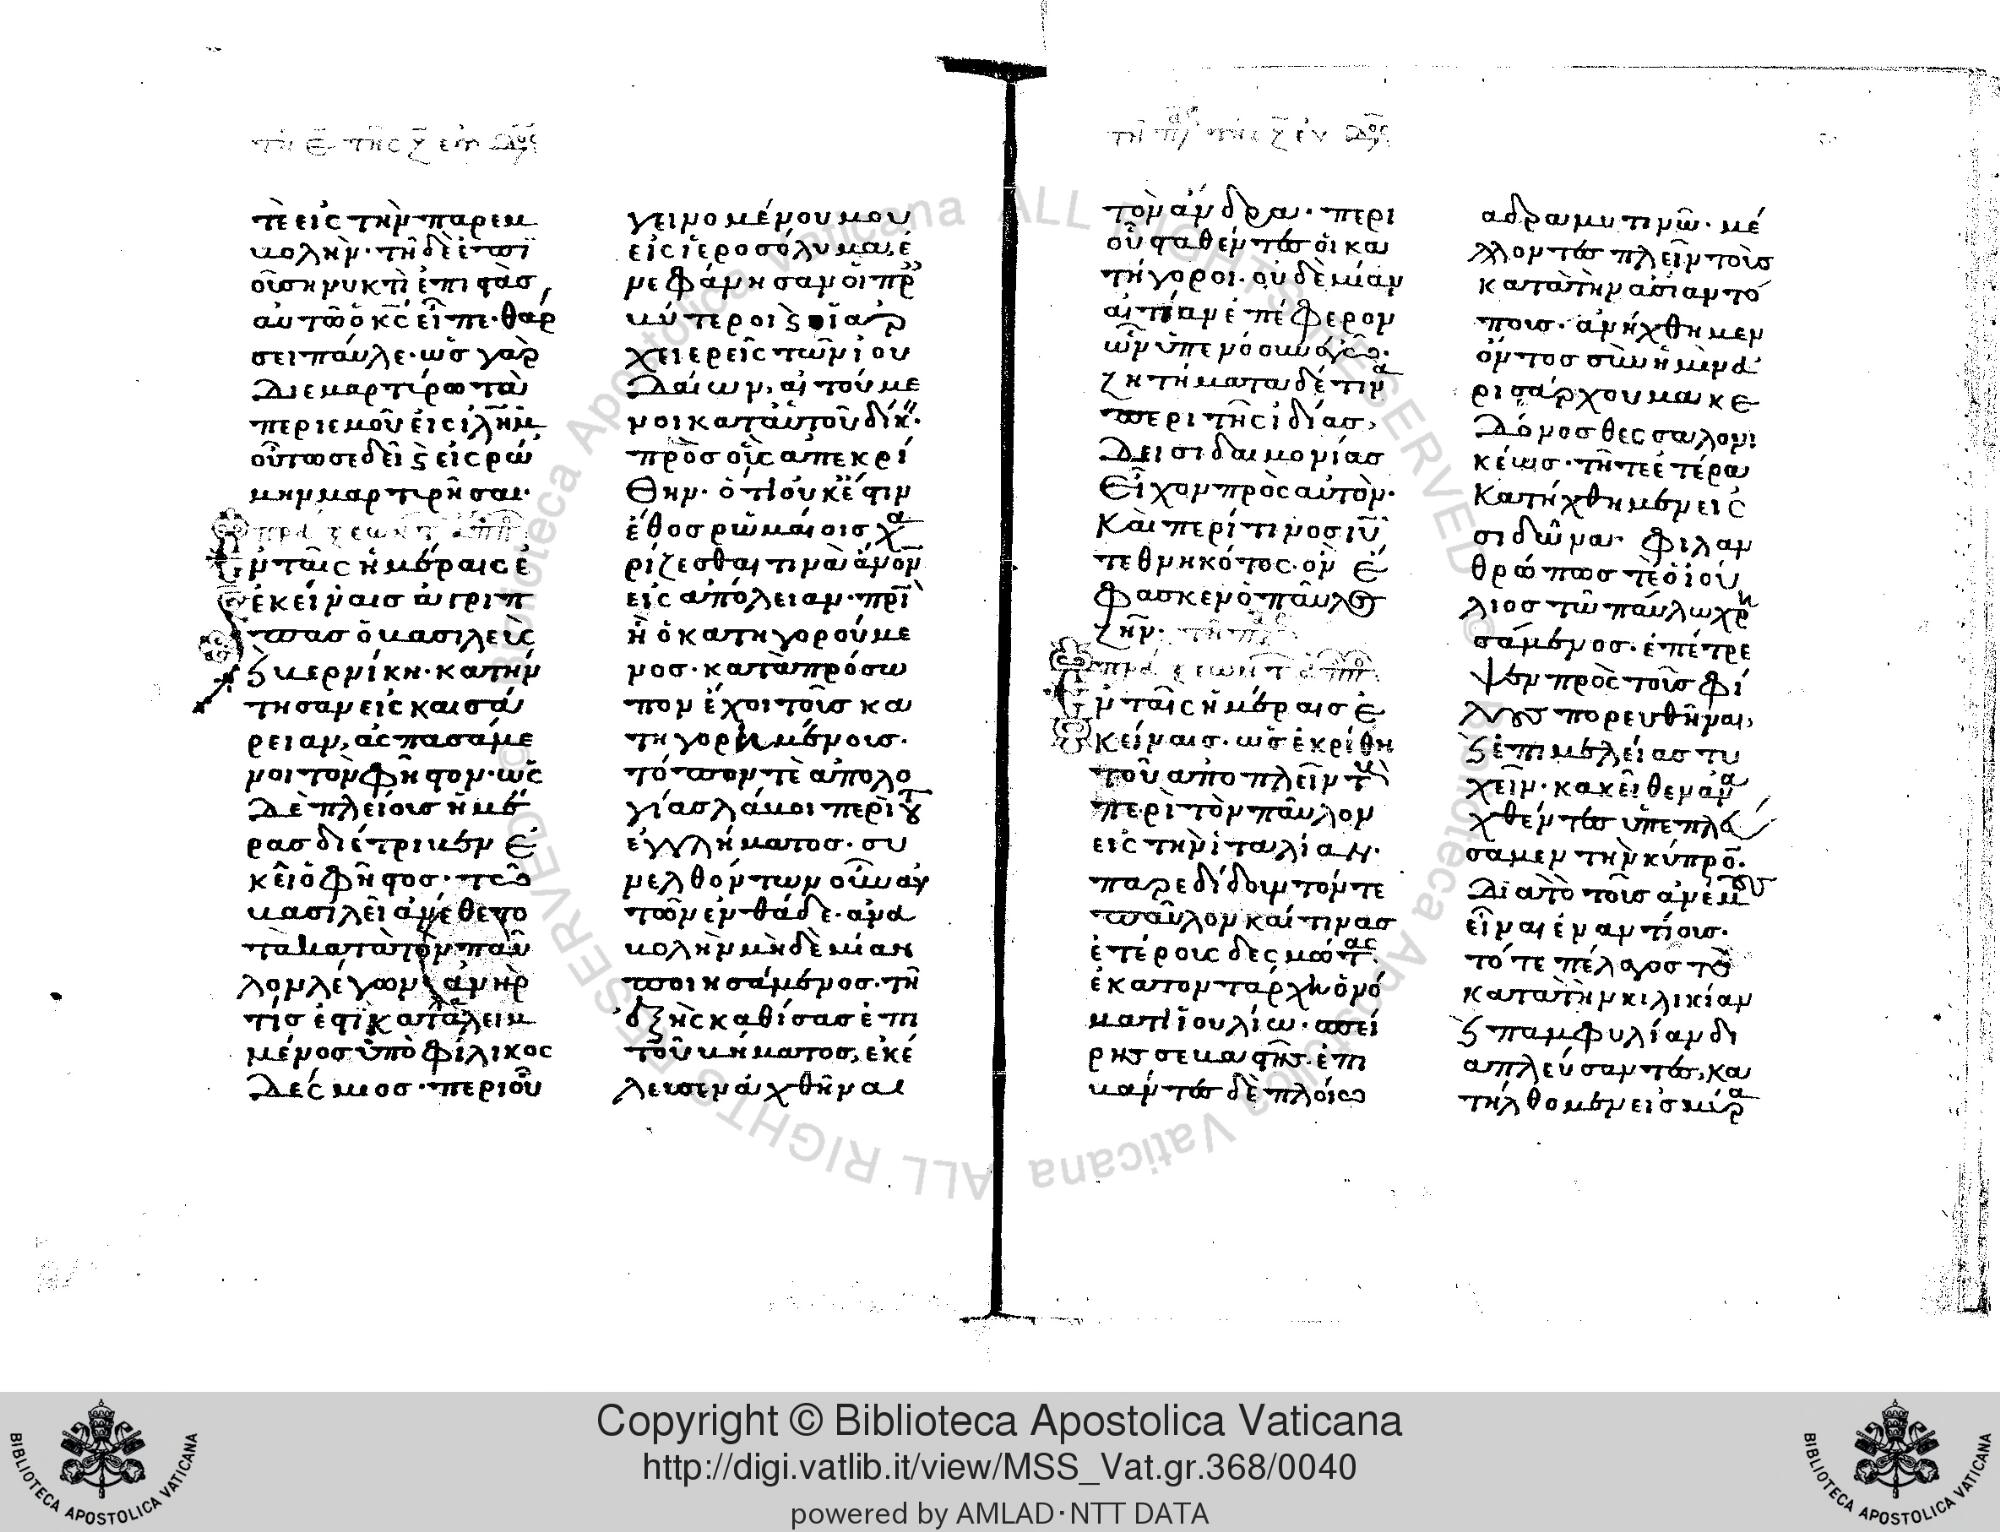 τῆ ε̄ τῆς ζ̄ ἑβδ
τὲ εἰς τὴν παρεμ
βολὴν· τῆ δὲ ἐπϊ
οῦση νυκτὶ ἐπιστὰς
αὐτῶ ὁ κ̅ς εἶπε· θάρ
σει παῦλε· ὡς γὰρ
διεμαρτύρω τὰ
περι ἐμοῦ εἰς ἱλῆμ
οὕτω σε δεῖ ϗ εἰς ρώ
μην μαρτυρῆσαι·
πράξεων τ ἀπο
ν ταῖς ἡμέραις ἐ
ἐκείναις ἀγριπ
πας ὁ βασιλεὺς
ϗ βερνίκη· κατήν
τησαν εἰς καισά
ρειαν, ἀσπασάμε
νοι τὸν φῆστον· ὡς
δὲ πλείους ἡμέ
ρας διέτριβεν ἐ
κεῖ ὁ φῆστος· τῶ
βασιλεῖ ἀνέθετο
τὰ κατὰ τὸν παῦ
λον λέγων· ἀνὴρ
τίς ἐστι καταλειμ
μένος ὑπὸ φίλικος
δέσμιος· περι οὗ
γεινομένου μου
εἰς ἱεροσόλυμα, ἐ
νεφάνησαν οἱ πρ
βύτεροι ϗ οἱ αρ
χειερεῖς τῶν ἰου
δαίων, αἰτούμε
νοι κατ αὐτοῦ δίκ·
πρὸς οὓς ἀπεκρί
θην· ὅτι οὐκ ἔστιν
ἔθος ρωμαίοις χα
ρίζεσθαι τινὰ ἄνον
εἰς ἀπόλειαν· πρὶ
ἢ ὁ κατηγορούμε
νος· κατὰ πρόσω
πον ἔχοι τοῦς κα
τηγορουμένους·
τόπον τὲ ἀπολο
γίας λάβοι περὶ τοῦ
ἐγγλήματος· συ
νελθόντων οὖν αυ
τῶν ἐνθάδε· ἀνα
βολὴν μηδὲμίαν
ποιησάμενος· τῆ
ἑξῆς καθίσας ἐπι
τοῦ βήματος, ἐκέ
λευσεν ἀχθῆναι
τῆ πα τῆς ζ̄ ἑν
τὸν ἄνδρα· περι
οὗ σταθέντες οἱ κα
τήγοροι· οὐδὲμίαν
αἰτίαν ἐπέφερον
ὧν ὑπενόουν ἐγώ·
ζητήματα δέ τινα
περι τῆς ἰδίας,
δεισιδαιμονίας
εἶχον πρὸς αὐτὸν·
και περί τινος ιυ
τεθνηκότος· ὃν ἔ
φασκεν ὁ παῦλος
ζῆν·
πράξεων τ ἀπο
ν ταῖς ἡμέραις ἐ
κείναις· ὡς ἐκρίθη
τοῦ ἀποπλεῖν τ
περὶ τὸν παῦλον
εἰς τὴν ἰταλίαν·
παρεδίδουν τόν τε
παῦλον καί τινας
ἑτέρους δεσμώτας
ἑκατοντάρχη ὀνό
ματι ἰουλίω· σπεί
ρης σεβαστῆς. ἐπι
βάντες δὲ πλοίω
αδραμυτινῶ· μέ
λλοντες πλεῖν τοὺς
κατα τὴν ἀσίαν τό
πους· ἀνήχθημεν
ὄντος σὺν ἡμῖν ἀ
ρισάρχου μακε
δόνος θεσσαλονι
κέως· τῆ τε ἑτέρα
κατήχθημεν εἰς
σιδῶνα· φιλαν
θρώπως τὲ ὁ ἰού
λιος τῶ παύλω χρη
σάμενος· ἐπέτρε
ψεν πρὸς τοῦς φί
λους πορευθῆναι,
ϗ ἐπιμελείας τυ
χεῖν· κακεῖθεν ἀνα
χθέντες ὑπεπλεύ
σαμεν τὴν κύπρο·
δι ατὸ τοῦς ἀνέμους
εἶναι ἐναντίους·
τό τε πέλαγος τὸ
κατα τὴν κιλικίαν
ϗ παμφυλίαν δι
απλεύσαντες, κα
τήλθομεν εἰς μύρα
Copyright © Biblioteca Apostolica Vaticana
http://digi.vatlib.it/view/MSS_Vat.gr.368/0040
powered by AMLAD·NTT DATA
BIBLIOTECA APOSTOLICA VATICANA
BIBLIOTECA APOSTOLICA VATICANA
Biblioteca Apostolica Vaticana ALL RIGHTS RESERVED ©
Biblioteca Apostolica Vaticana ALL RIGHTS RESERVED ©